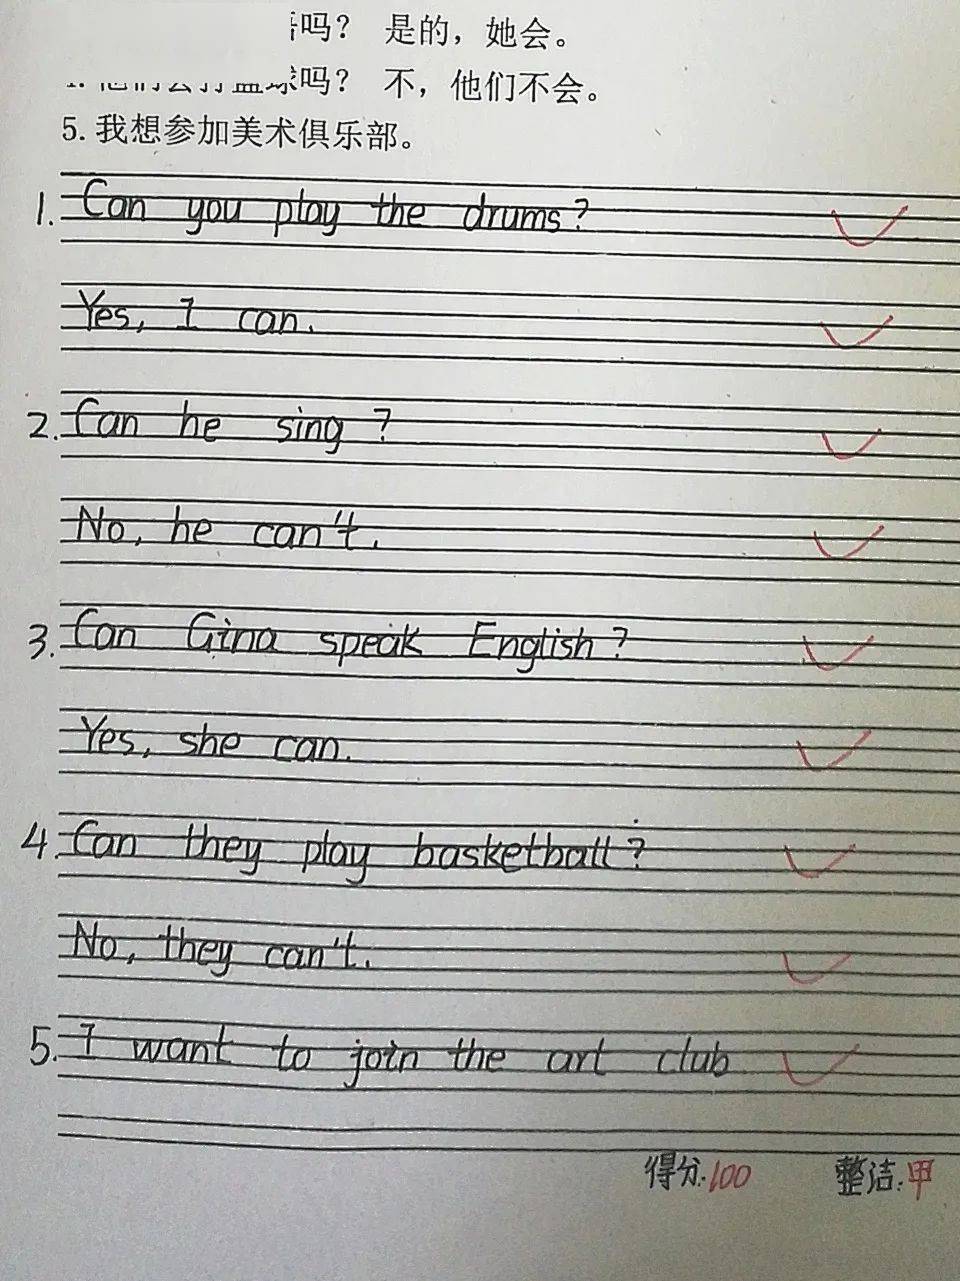 吗? 是的，她会。
吗? 不，他们不会。
5. 我想参加美术俱乐部。
1. Can you play the drums?
Yes, I can.
2. Can he sing?
No, he can't.
3. Can Gina speak English?
Yes, she can.
4. Can they play basketball?
No, they can't.
5. I want to join the art club
得分:100 整洁:甲